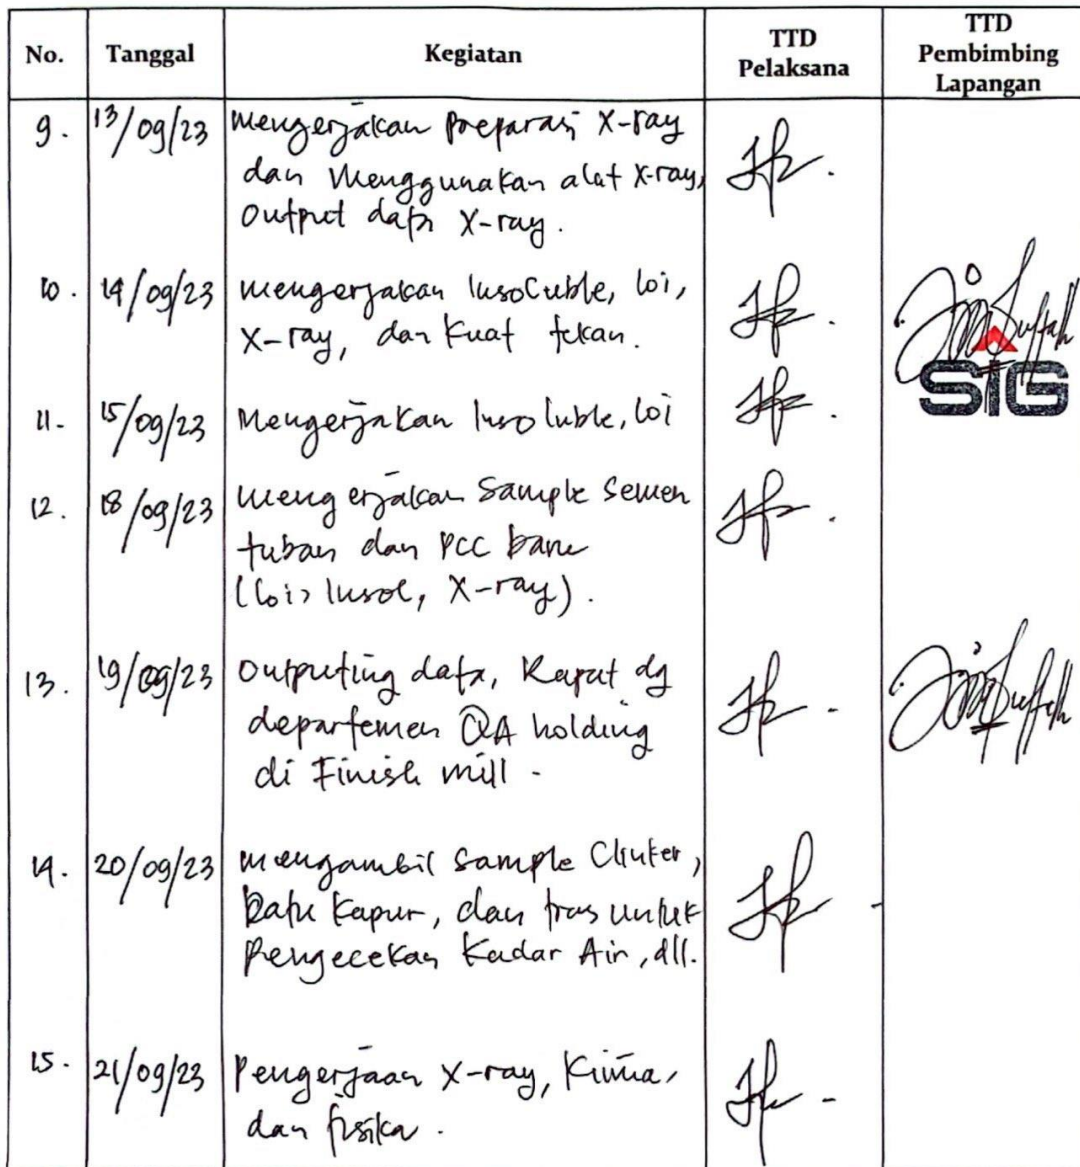 No. Tanggal Kegiatan TTD Pelaksana TTD Pembimbing Lapangan
9. 13/09/23 mengerjakan Preparasi X-ray
dan menggunakan alat X-ray,
Output data X-ray.
10. 14/09/23 mengerjakan Insoluble, loi,
X-ray, dan Kuat tekan.
SIG
11. 15/09/23 Mengerjakan Insoluble, loi
12. 18/09/23 mengerjakan Sample Semen
tuban dan PCC baru
(loi, Insol, X-ray).
13. 19/09/23 Outputing data, Rapat dg
departemen QA holding
di Finish mill.
14. 20/09/23 mengambil Sample Clinker,
Batu Kapur, dan tras untuk
Pengecekan Kadar Air, dll.
15. 21/09/23 Pengerjaan X-ray, Kimia,
dan fisika.